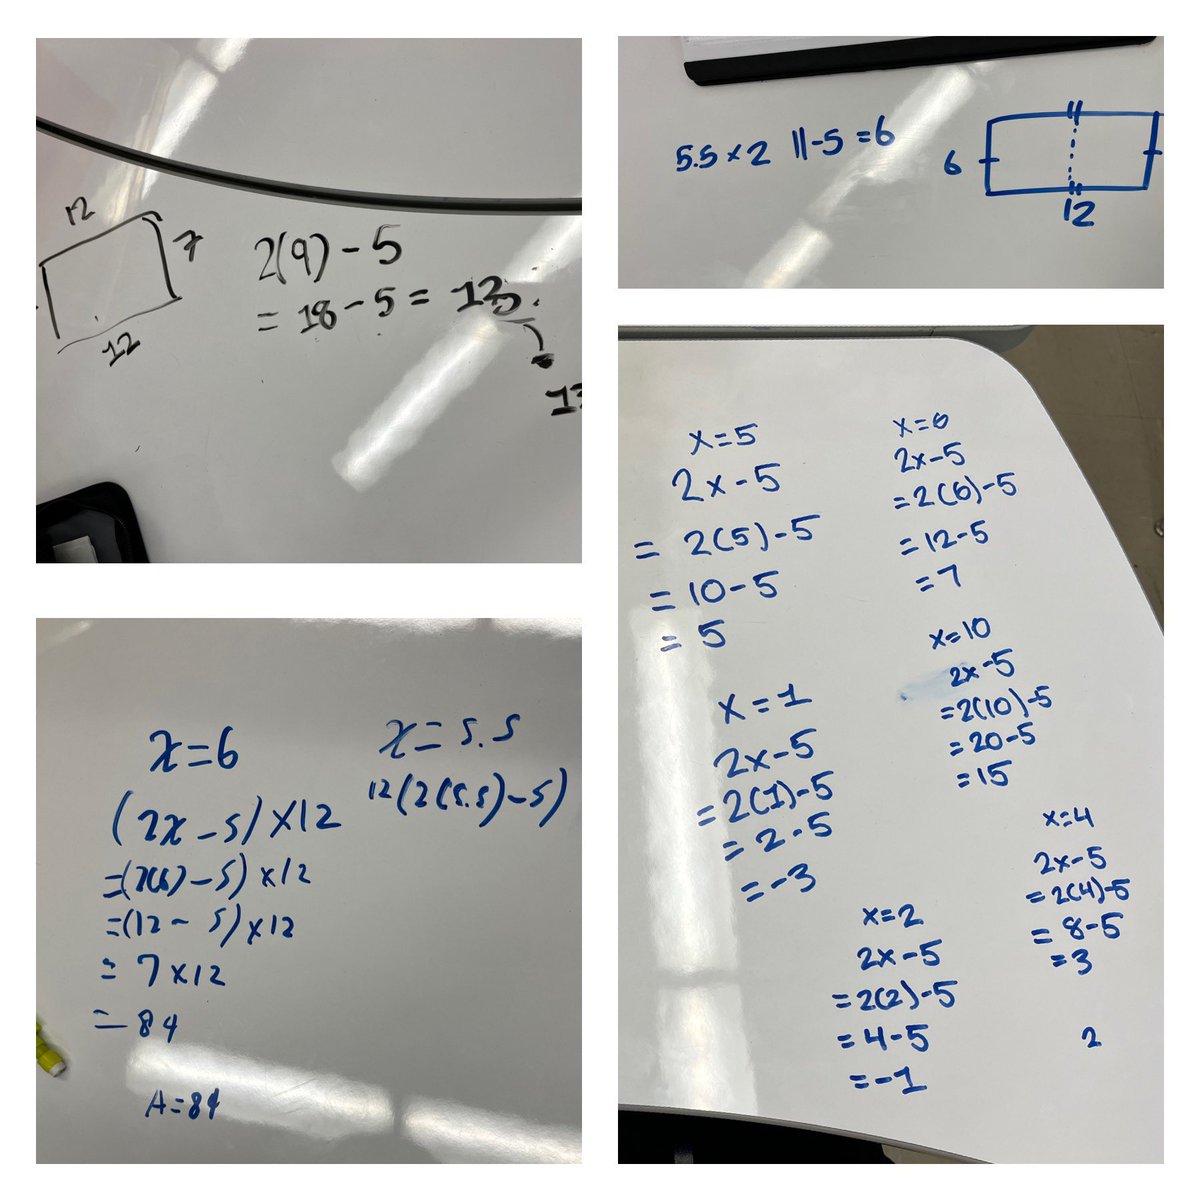 12
7
12
2(9) - 5
= 18 - 5 =
5.5 x 2 11-5 = 6
6
12
x=6
(2x - 5) x 12
=(2(6) - 5) x 12
=(12 - 5) x 12
= 7 x 12
= 84
A = 84
x = 5.5
12(2(5.5) - 5)
x = 5
2x - 5
= 2(5) - 5
= 10 - 5
= 5
x = 6
2x - 5
= 2(6) - 5
= 12 - 5
= 7
x = 10
2x - 5
= 2(10) - 5
= 20 - 5
= 15
x = 1
2x - 5
= 2(1) - 5
= 2 - 5
= -3
x = 4
2x - 5
= 2(4) - 5
= 8 - 5
= 3
x = 2
2x - 5
= 2(2) - 5
= 4 - 5
= -1
2